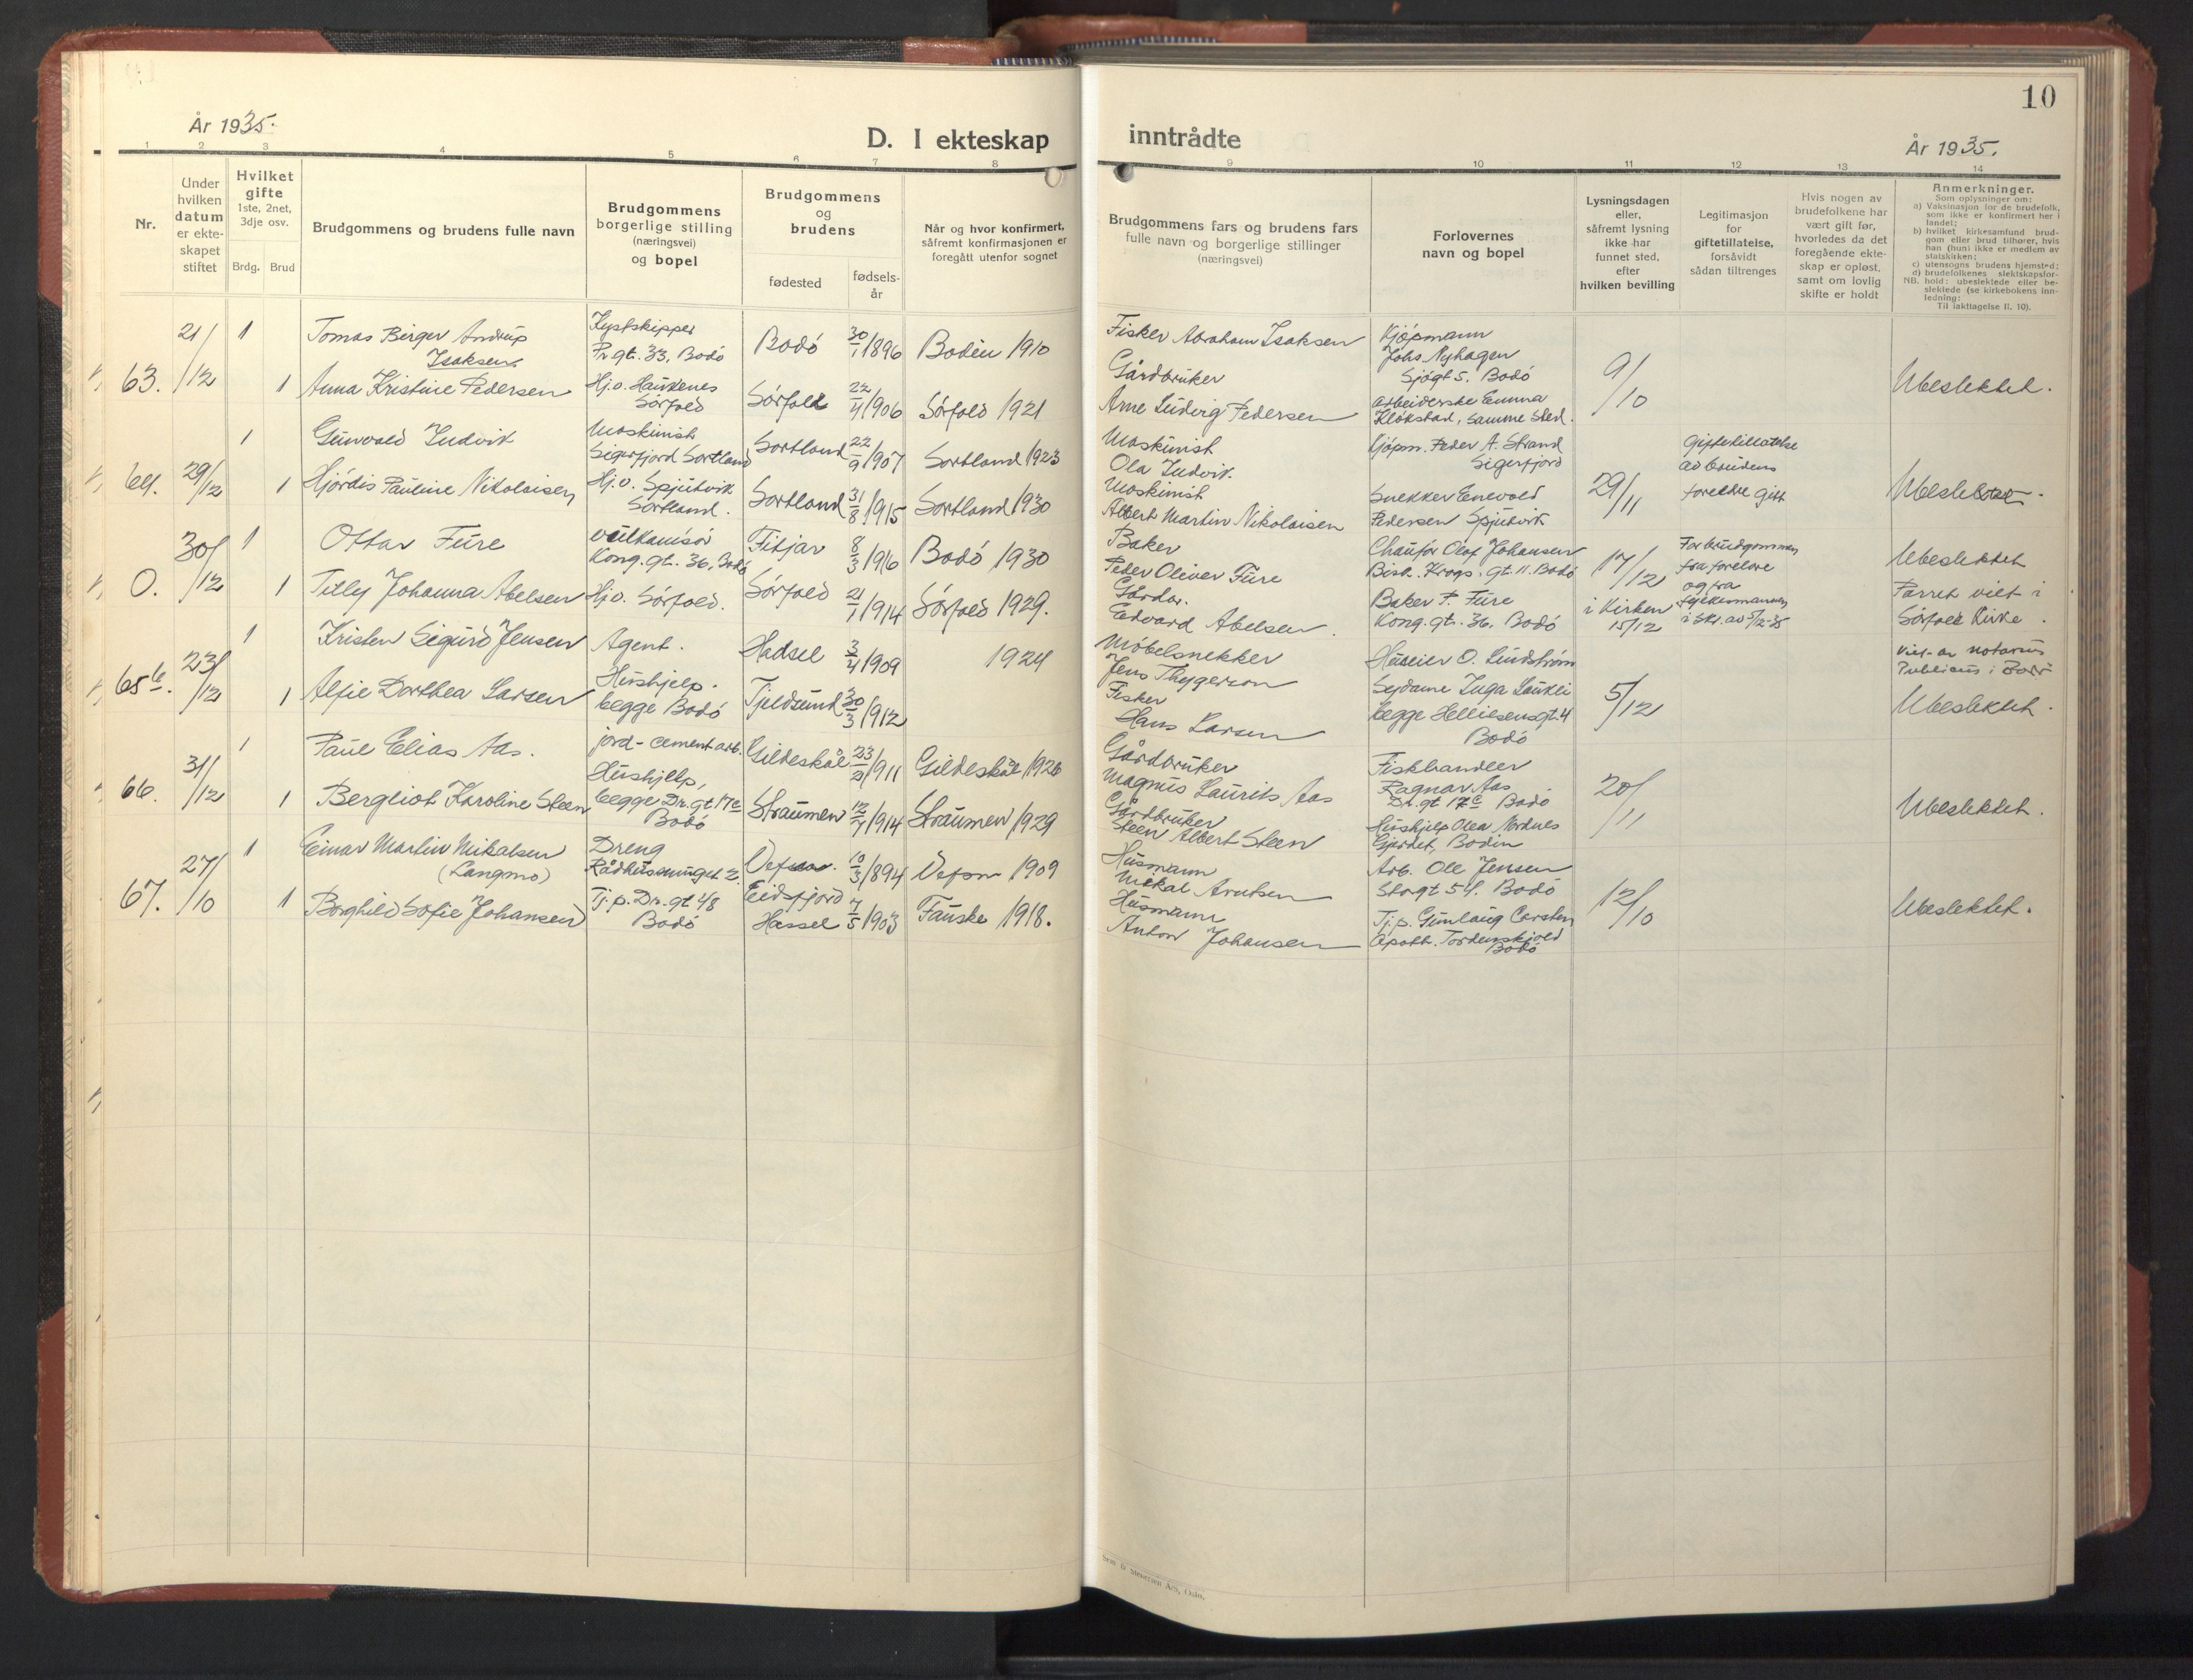 10
År 1935.
D. I ekteskap
inntrådte
År 1935.
1 2 3 4 5 6 7 8
9 10 11 12 13 14
Nr.
Under hvilken datum er ekte-skapet stiftet
Hvilket gifte 1ste, 2net, 3dje osv.
Brdg. Brud
Brudgommens og brudens fulle navn
Brudgommens borgerlige stilling (næringsvei) og bopel
Brudgommens og brudens
fødested
fødsels-år
Når og hvor konfirmert, såfremt konfirmasjonen er foregått utenfor sognet
Brudgommens fars og brudens fars fulle navn og borgerlige stillinger (næringsvei)
Forlovernes navn og bopel
Lysningsdagen eller, såfremt lysning ikke har funnet sted, efter hvilken bevilling
Legitimasjon for giftetillatelse, forsåvidt sådan tiltrenges
Hvis nogen av brudefolkene har vært gift før, hvorledes da det foregående ekte-skap er opløst, samt om lovlig skifte er holdt
Anmerkninger.
Som oplysninger om:
a) Vaksinasjon for de brudefolk, som ikke er konfirmert her i landet;
b) hvilket kirkesamfund brud-gom eller brud tilhører, hvis han (hun) ikke er medlem av statskirken;
c) utensogns brudens hjemsted;
d) brudefolkenes slektskapsfor-hold: ubeslektede eller be-slektede (se kirkebokens inn-ledning:
NB.
Til iakttagelse II. 10).
63. 21/12
1 Tomas Birger Andrup Isaksen
Kystskipper
Pr.gt. 33, Bodö
Bodö 30/1 1896 Bodin 1910
Fisker Abraham Isaksen
Kjøpmann
Johs. Nyhagen
Sjøgt 5. Bodö
9/10
Ubeslektet.
1 Anna Kristine Pedersen
Hj.o. Haukenes
Sörfold
Sörfold 22/4 1906 Sörfold 1921
Gårdbruker
Arne Ludvig Pedersen
Arbeiderske Emma
Kløkstad, samme sted.
64. 29/12
1 Gunvald Ludvik
Maskinist
Sigerfjord Sortland
Sortland 22/9 1907 Sortland 1923
Maskinist
Ola Ludvik.
Kjøpm. Peder A. Strand
Sigerfjord
29/11
Giftetillatelse
av brudens
foreldre gitt
Ubeslektet.
1 Hjördis Pauline Nikolaisen
Hj.o. Spjutvik
Sortland.
Sortland 31/8 1915 Sortland 1930
Maskinist
Albert Martin Nikolaisen
Snekker Enevold
Pedersen Spjutvik
0. 30/12
1 Ottar Fure
Kong.gt. 36, Bodö
Fitjar 8/3 1916 Bodö 1930
Baker
Peder Oliver Fure
Chaufør Olaf Johansen
Bisk. Krogs. gt. 11. Bodö
17/12
For brudgommen
fra foreldre
og fra
fylkesmannen
i skr. av 5/12-35
Ubeslektet
Parret viet i
Sörfold Kirke.
1 Tilly Johanna Abelsen
Hj.o. Sörfold.
Sörfold 21/1 1914 Sörfold 1929.
Gårdbr.
Edvard Abelsen.
Baker P. Fure
Kong. gt. 36. Bodö
i Kirken
15/12
65 b. 23/12
1 Kristen Sigurd Jensen
Agent.
Hadsel 3/4 1909 1924
Møbelsnekker
Jens Thygerson
Huseier O. Lindstrøm
5/12
Viet av notarius
Publicus i Bodö
Ubeslektet.
1 Alfie Dorthea Larsen
Hushjelp.
begge Bodö
Tjeldsund 30/3 1912
Fisker
Hans Larsen
Sydame Inga Laukli
begge Hellesensgt. 4
Bodö
66. 31/12
1 Paul Elias Aas.
jord- cement arb.
Gildeskål 23/2 1911 Gildeskål 1926
Gårdbruker
Magnus Laurits Aas
Fiskhandler
Ragnar Aas
Dr.gt 17c Bodö
20/11
Ubeslektet.
1 Bergliot Karoline Steen
Hushjelp,
begge Dr.gt 17c
Bodö
Straumen 12/7 1914 Straumen 1929
Gårdbruker
Steen Albert Steen
Hushjelp Olea Nordnes
Gjerdet, Bodin
67. 27/10
1 Einar Martin Mikalsen
(Langmo)
Dreng
Vefsn. 10/3 1894 Vefsn 1909
Husmann
Mikal Arntsen
Arb. Ole Jensen
Storgt 54. Bodö
12/10
Ubeslektet.
1 Borghild Sofie Johansen
Tj.p. Dr.gt 48
Bodö
Eidsfjord
Hassel 7/5 1903 Fauske 1918.
Husmann
Anton Johansen
Tj.p. Gunlaug Carsten
Apoth. Tordenskjold
Bodö